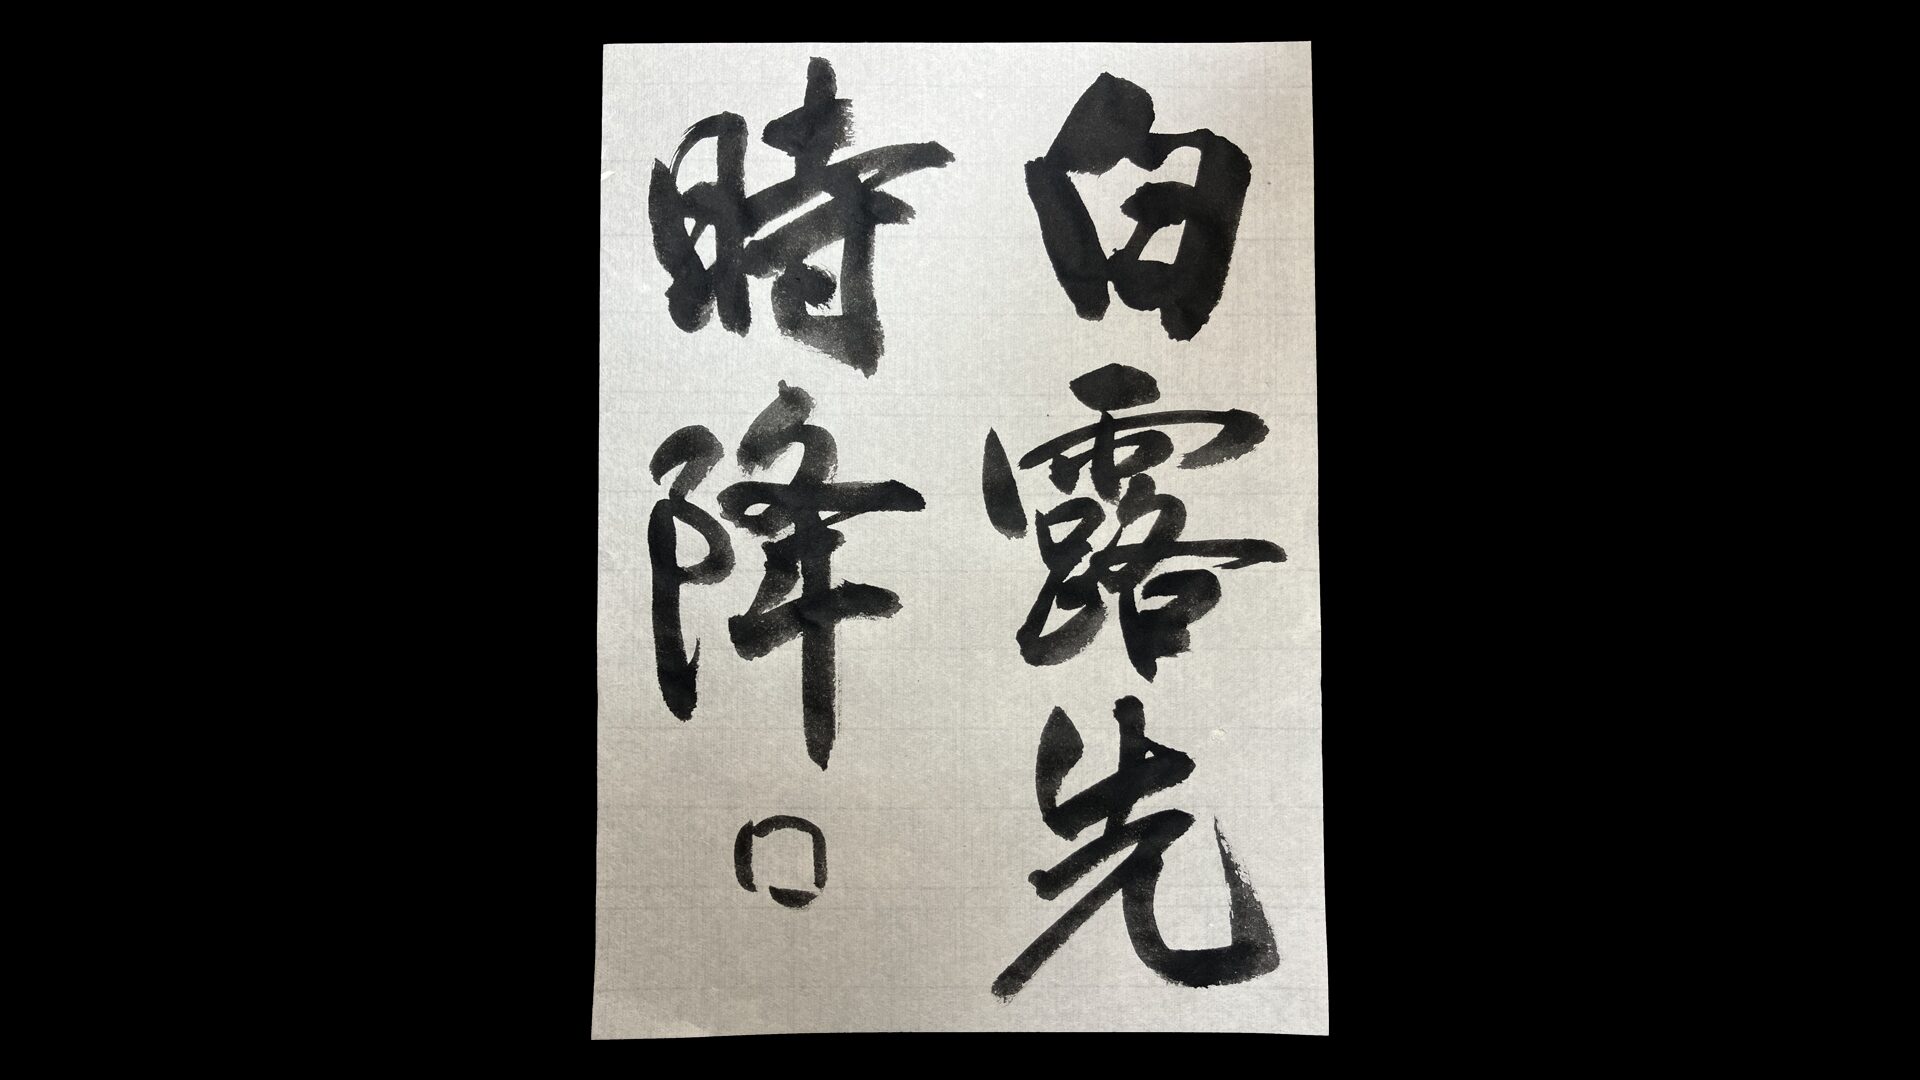 白露先
時降